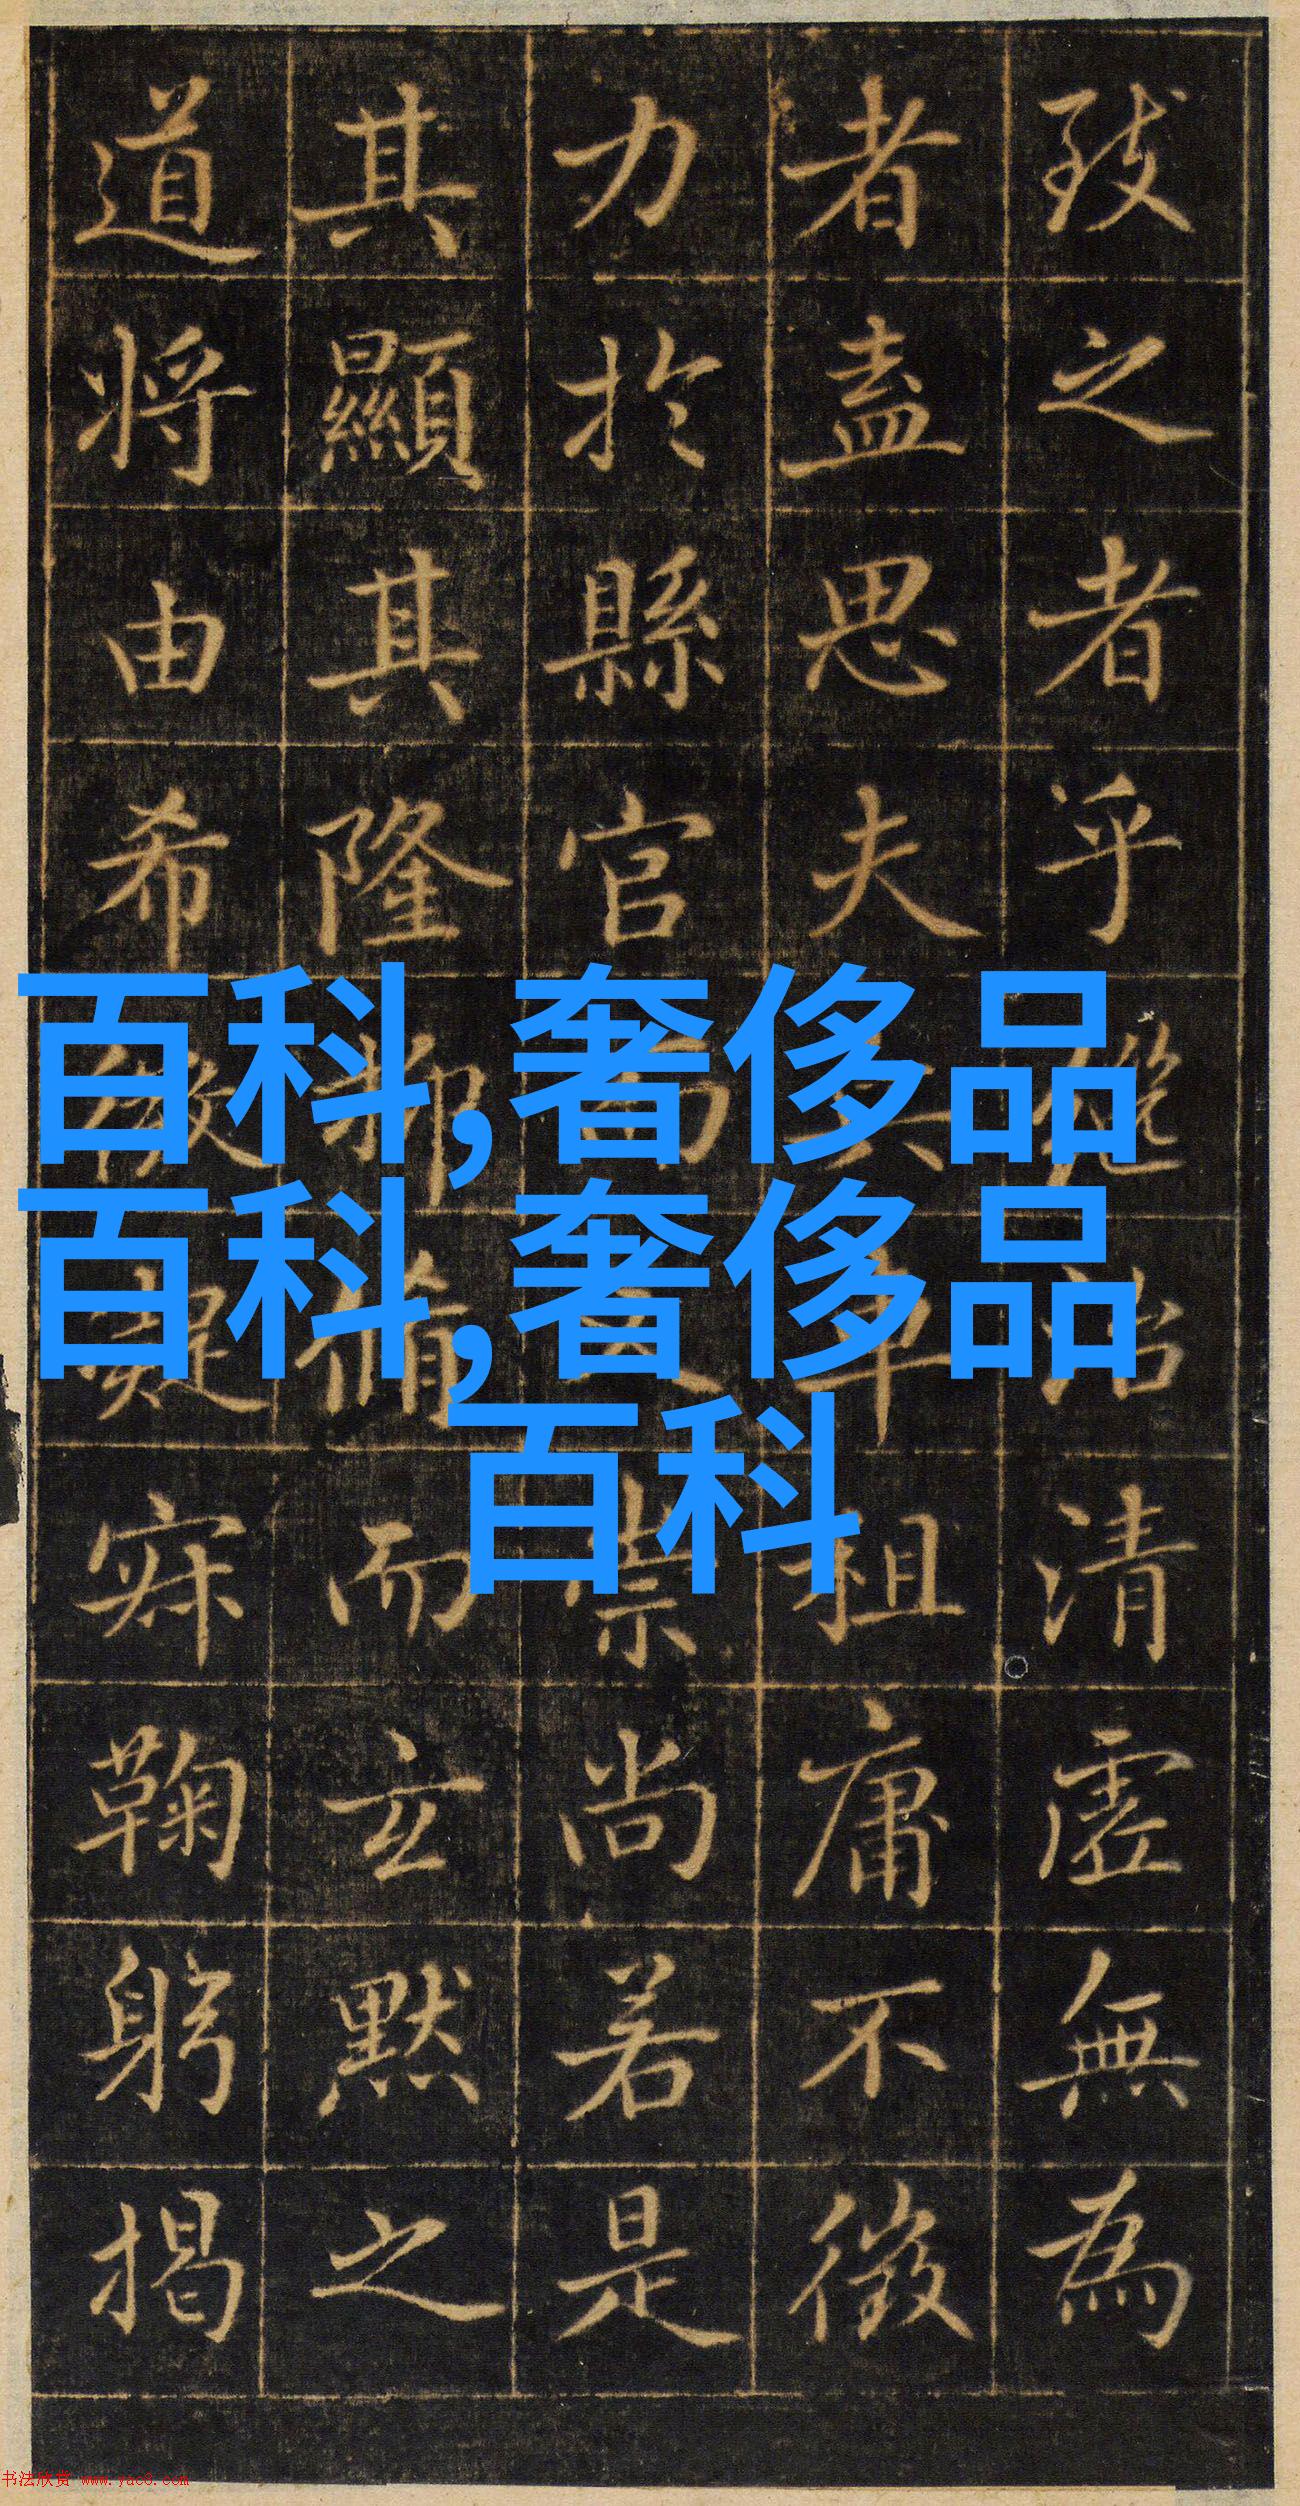 致之者乎治清虛無為
者盡思夫車租庸不徵
力於縣官而又崇尚若是
其顯其隆而玄默之
道將由希微凝寂鞠躬揭
百科,奢侈品
百科,奢侈品
百科
书法欣赏 www.yac8.com